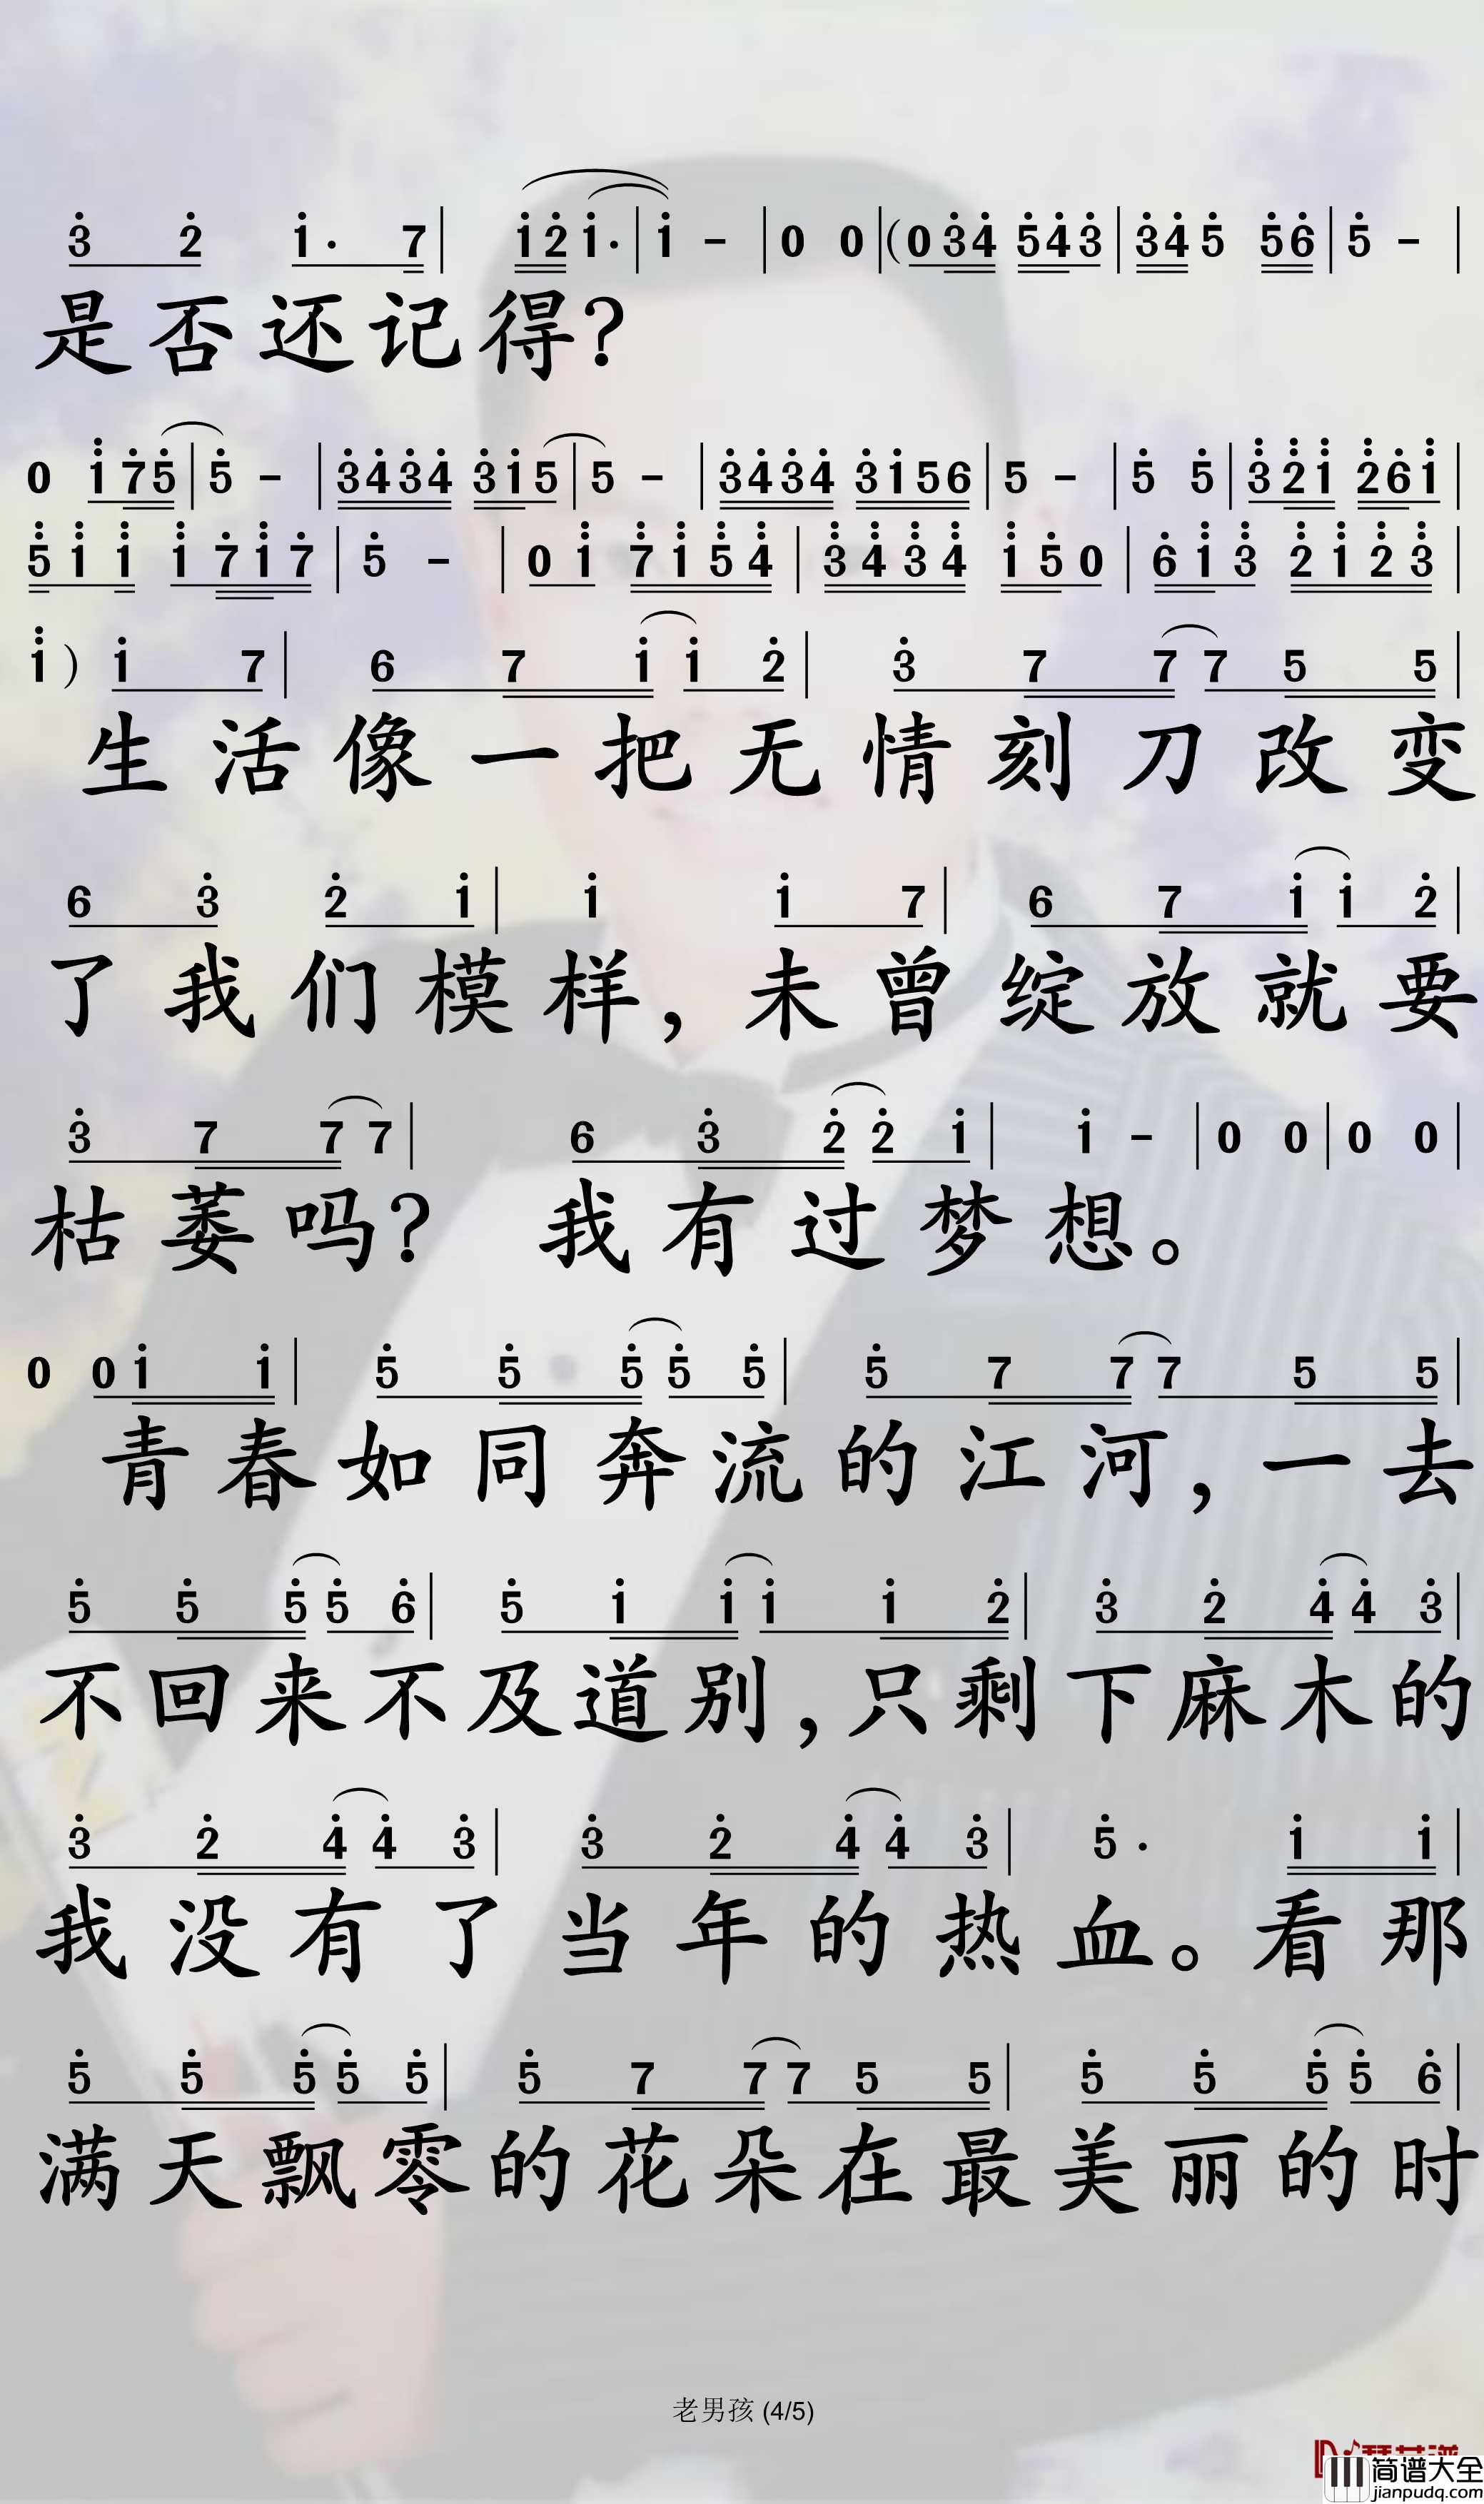 3̇ 2̇ 1̇· 7 | 1̇ 2̇ 1̇· | 1̇ - | 0 0 | (0 3̇ 4̇ 5̇ 4̇ 3̇ | 3̇ 4̇ 5̇ 5̇ 6̇ | 5̇ - |
是否还记得？
0 1̈ 7̇ 5̇ | 5̇ - | 3̇ 4̇ 3̇ 4̇ 3̇ 1̇ 5 | 5 - | 3̇ 4̇ 3̇ 4̇ 3̇ 1̇ 5 6 | 5 - | 5̇ 5̇ | 3̈ 2̈ 1̈ 2̈ 6̇ 1̈ |
5̇ 1̈ 1̈ 1̈ 7̇ 1̈ 7̇ | 5̇ - | 0 1̈ 7̇ 1̈ 5̈ 4̈ | 3̈ 4̈ 3̈ 4̈ 1̈ 5̇ 0 | 6̇ 1̈ 3̇ 2̈ 1̈ 2̈ 3̈ |
1̈ ) 1̇ 7 | 6 7 1̇ 1̇ 2̇ | 3̇ 7 7 7 5 5 |
生活像一把无情刻刀改变
6 3̇ 2̇ 1̇ | 1̇ 1̇ 7 | 6 7 1̇ 1̇ 2̇ |
了我们模样，未曾绽放就要
3̇ 7 7 7 | 6 3̇ 2̇ 2̇ 1̇ | 1̇ - | 0 0 | 0 0 |
枯萎吗？ 我有过梦想。
0 0 1̇ 1̇ | 5̇ 5̇ 5̇ 5̇ 5̇ | 5̇ 7 7 7 5 5 |
青春如同奔流的江河，一去
5̇ 5̇ 5̇ 5̇ 6̇ | 5̇ 1̇ 1̇ 1̇ 1̇ 2̇ | 3̇ 2̇ 4̇ 4̇ 3̇ |
不回来不及道别，只剩下麻木的
3̇ 2̇ 4̇ 4̇ 3̇ | 3̇ 2̇ 4̇ 4̇ 3̇ | 5̇· 1̇ 1̇ |
我没有了当年的热血。看那
5̇ 5̇ 5̇ 5̇ 5̇ | 5̇ 7 7 7 5 5 | 5̇ 5̇ 5̇ 5̇ 6̇ |
满天飘零的花朵在最美丽的时
老男孩 (4/5)
简谱大全
jianpudq.com